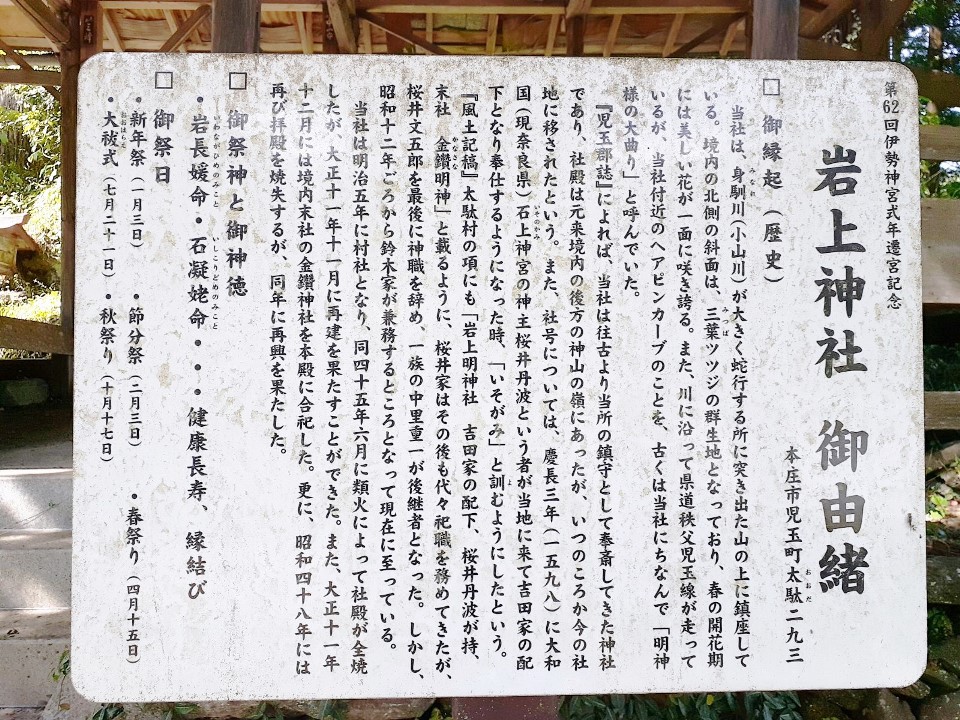 第62回伊勢神宮式年遷宮記念
岩上神社 御由緒
本庄市児玉町太駄二九三
おおだ
□ 御縁起（歴史）
当社は、身馴川（小山川）が大きく蛇行する所に突き出た山の上に鎮座して
みなれ
いる。境内の北側の斜面は、三葉ツツジの群生地となっており、春の開花期
みつば
には美しい花が一面に咲き誇る。また、川に沿って県道秩父児玉線が走って
いるが、当社付近のヘアピンカーブのことを、古くは当社にちなんで「明神
様の大曲り」と呼んでいた。
『児玉郡誌』によれば、当社は往古より当所の鎮守として奉斎してきた神社
であり、社殿は元来境内の後方の神山の嶺にあったが、いつのころか今の社
地に移されたという。また、社号については、慶長三年（一五九八）に大和
国（現奈良県）石上神宮の神主桜井丹波という者が当地に来て吉田家の配
いそのかみ
下となり奉仕するようになった時、「いそがみ」と訓むようにしたという。
よ
『風土記稿』太駄村の項にも「岩上明神社 吉田家の配下、桜井丹波が持、
末社 金鑽明神」と載るように、桜井家はその後も代々祀職を務めてきたが、
かなさな
桜井文五郎を最後に神職を辞め、一族の中里重一が後継者となった。しかし、
昭和十二年ごろから鈴木家が兼務するところとなって現在に至っている。
当社は明治五年に村社となり、同四十五年六月に類火によって社殿が全焼
したが、大正十一年十一月に再建を果たすことができた。また、大正十一年
十二月には境内末社の金鑽神社を本殿に合祀した。更に、昭和四十八年には
再び拝殿を焼失するが、同年に再興を果たした。
□ 御祭神と御神徳
・岩長媛命・石凝姥命・・・健康長寿、縁結び
いわながひめのみこと いしこりどめのみこと
□ 御祭日
・新年祭（一月三日） ・節分祭（二月三日） ・春祭り（四月十五日）
・大祓式（七月二十一日）・秋祭り（十月十七日）
おおはらえ